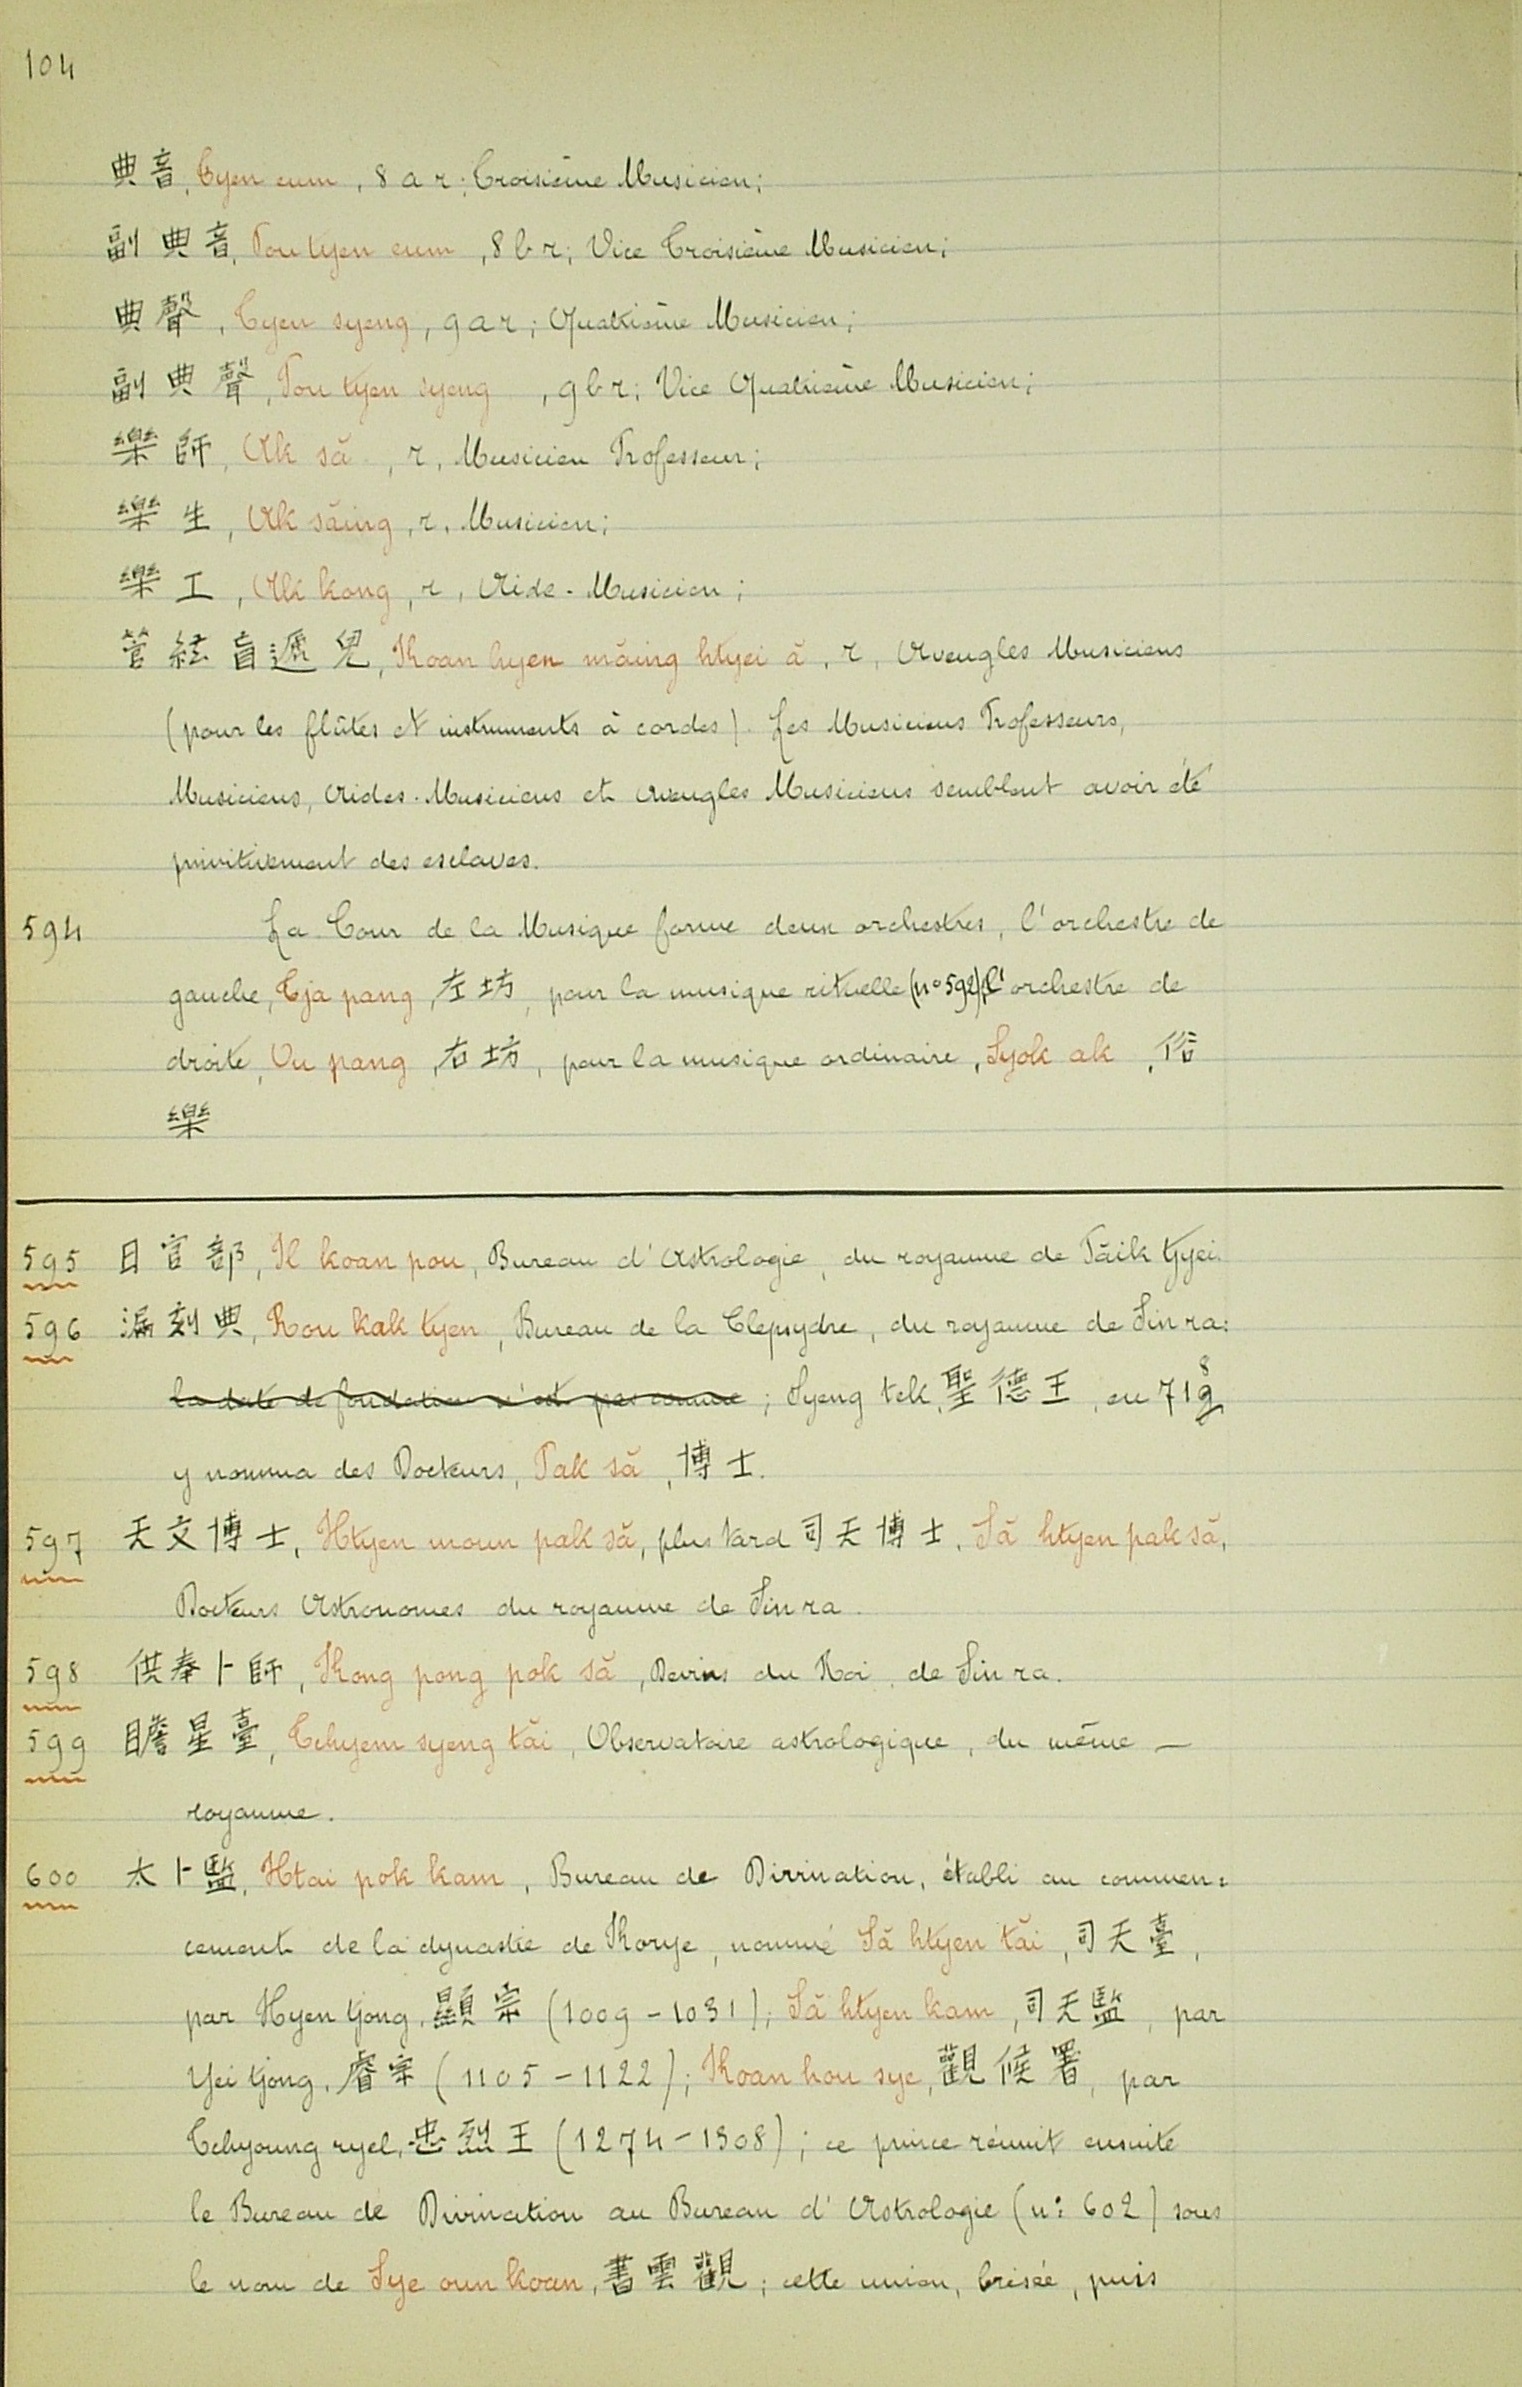 104
典音, Tyen eum, 8 a r; Troisième Musicien;
副典音, Pou tyen eum, 8 b r; Vice Troisième Musicien;
典聲, Tyen syeng, 9 a r; Quatrième Musicien;
副典聲, Pou tyen syeng, 9 b r; Vice Quatrième Musicien;
樂師, Ak să, r, Musicien Professeur;
樂生, Ak săing, r, Musicien;
樂工, Ak kong, r, Aide-Musicien;
管絃盲遞兒, Koan hyen măing htyei ă, r, Aveugles Musiciens
(pour les flûtes et instruments à cordes). Les Musiciens Professeurs,
Musiciens, Aides-Musiciens et Aveugles Musiciens semblent avoir été
primitivement des esclaves.
594 La Cour de la Musique forme deux orchestres, l'orchestre de
gauche, Tja pang, 左坊, pour la musique rituelle (n° 592), l'orchestre de
droite, Ou pang, 右坊, pour la musique ordinaire, Syok ak, 俗
樂
595 日官部, Il koan pou, Bureau d'Astrologie, du royaume de Păik tjyei.
596 漏刻典, Rou kak tyen, Bureau de la Clepsydre, du royaume de Sin ra:
la date de fondation n'est pas connue; Syeng tek, 聖德王, en 719 8
y nomma des Docteurs, Pak să, 博士.
597 天文博士, Htyen moun pak să, plus tard 司天博士, Să htyen pak să,
Docteurs Astronomes du royaume de Sin ra.
598 供奉卜師, Kong pong pok să, Devins du Roi, de Sin ra.
599 瞻星臺, Tchyem syeng tăi, Observatoire astrologique, du même —
royaume.
600 太卜監, Htai pok kam, Bureau de Divination, établi au commen=
cement de la dynastie de Korye, nommé Să htyen tăi, 司天臺,
par Hyen tjong, 顯宗 (1009-1031); Să htyen kam, 司天監, par
Yei tjong, 睿宗 (1105-1122); Koan hou sye, 觀候署, par
Tchyoung ryel, 忠烈王 (1274-1308); ce prince réunit ensuite
le Bureau de Divination au Bureau d'Astrologie (n: 602) sous
le nom de Sye oun koan, 書雲觀; cette union, brisée, puis